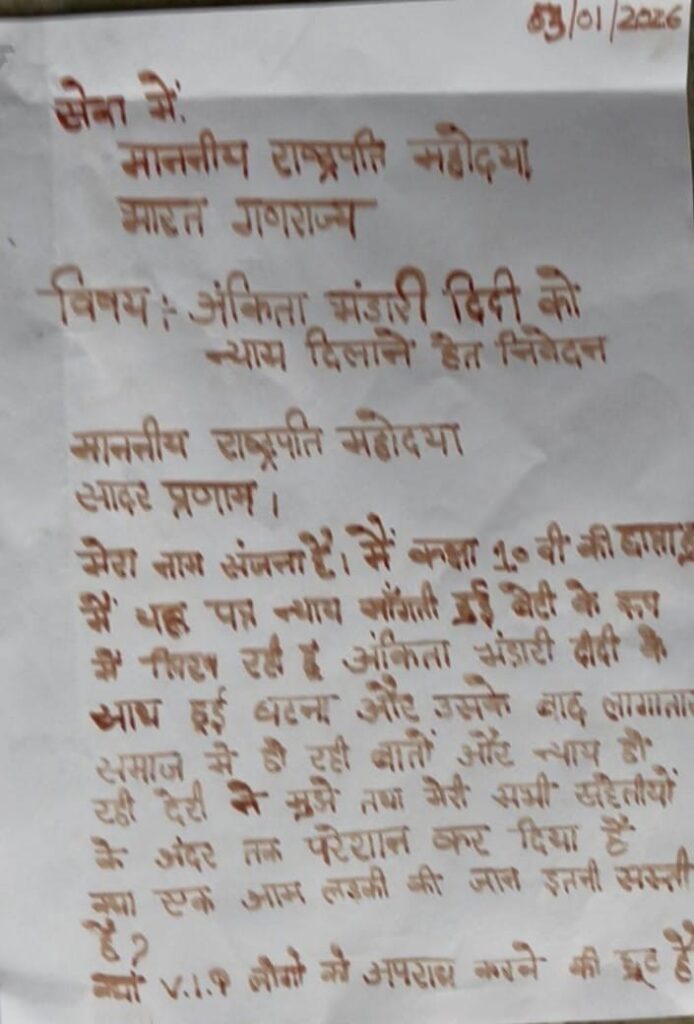 03/01/2026
सेवा में.
माननीय राष्ट्रपति महोदया
भारत गणराज्य
विषय : अंकिता भंडारी दिदी को
न्याय दिलाने हेत निवेदन
माननीय राष्ट्रपति महोदया
सादर प्रणाम ।
मेरा नाम संजना है। मैं कक्षा 10 वी की छात्रा हूँ
मैं यह पत्र न्याय माँगती हुई बेटी के रूप
में लिख रही हूं अंकिता भंडारी दीदी के
साथ हुई घटना और उसके बाद लागातार
समाज मे हो रही बातों और न्याय हो
रही देरी ने मुझे तथा मेरी सभी सहेलीयों
के अंदर तक परेशान कर दिया है
क्या एक आम लडकी की जान इतनी सस्ती
है?
क्या V.I.P लोगो को अपराध करने की छूट है